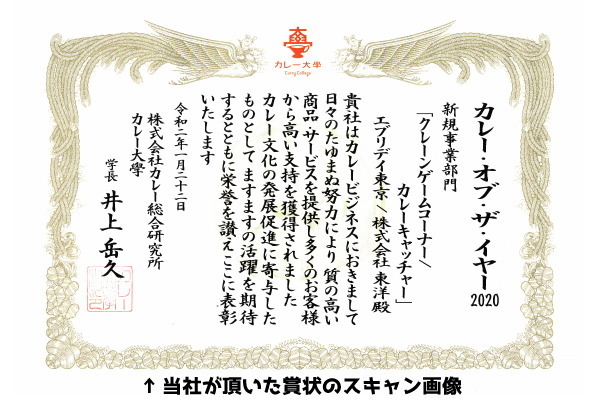 カレー大學
Curry College
カレー・オブ・ザ・イヤー2020
新規事業部門
「クレーンゲームコーナー／
カレーキャッチャー」
エブリデイ東京／株式会社 東洋殿
貴社はカレービジネスにおきまして
日々のたゆまぬ努力により質の高い
商品・サービスを提供し多くのお客様
から高い支持を獲得されました
カレー文化の発展促進に寄与した
ものとしてますますの活躍を期待
するとともに栄誉を讃えここに表彰
いたします
令和二年一月二十二日
株式会社カレー総合研究所
カレー大學
学長 井上 岳久
↑当社が頂いた賞状のスキャン画像